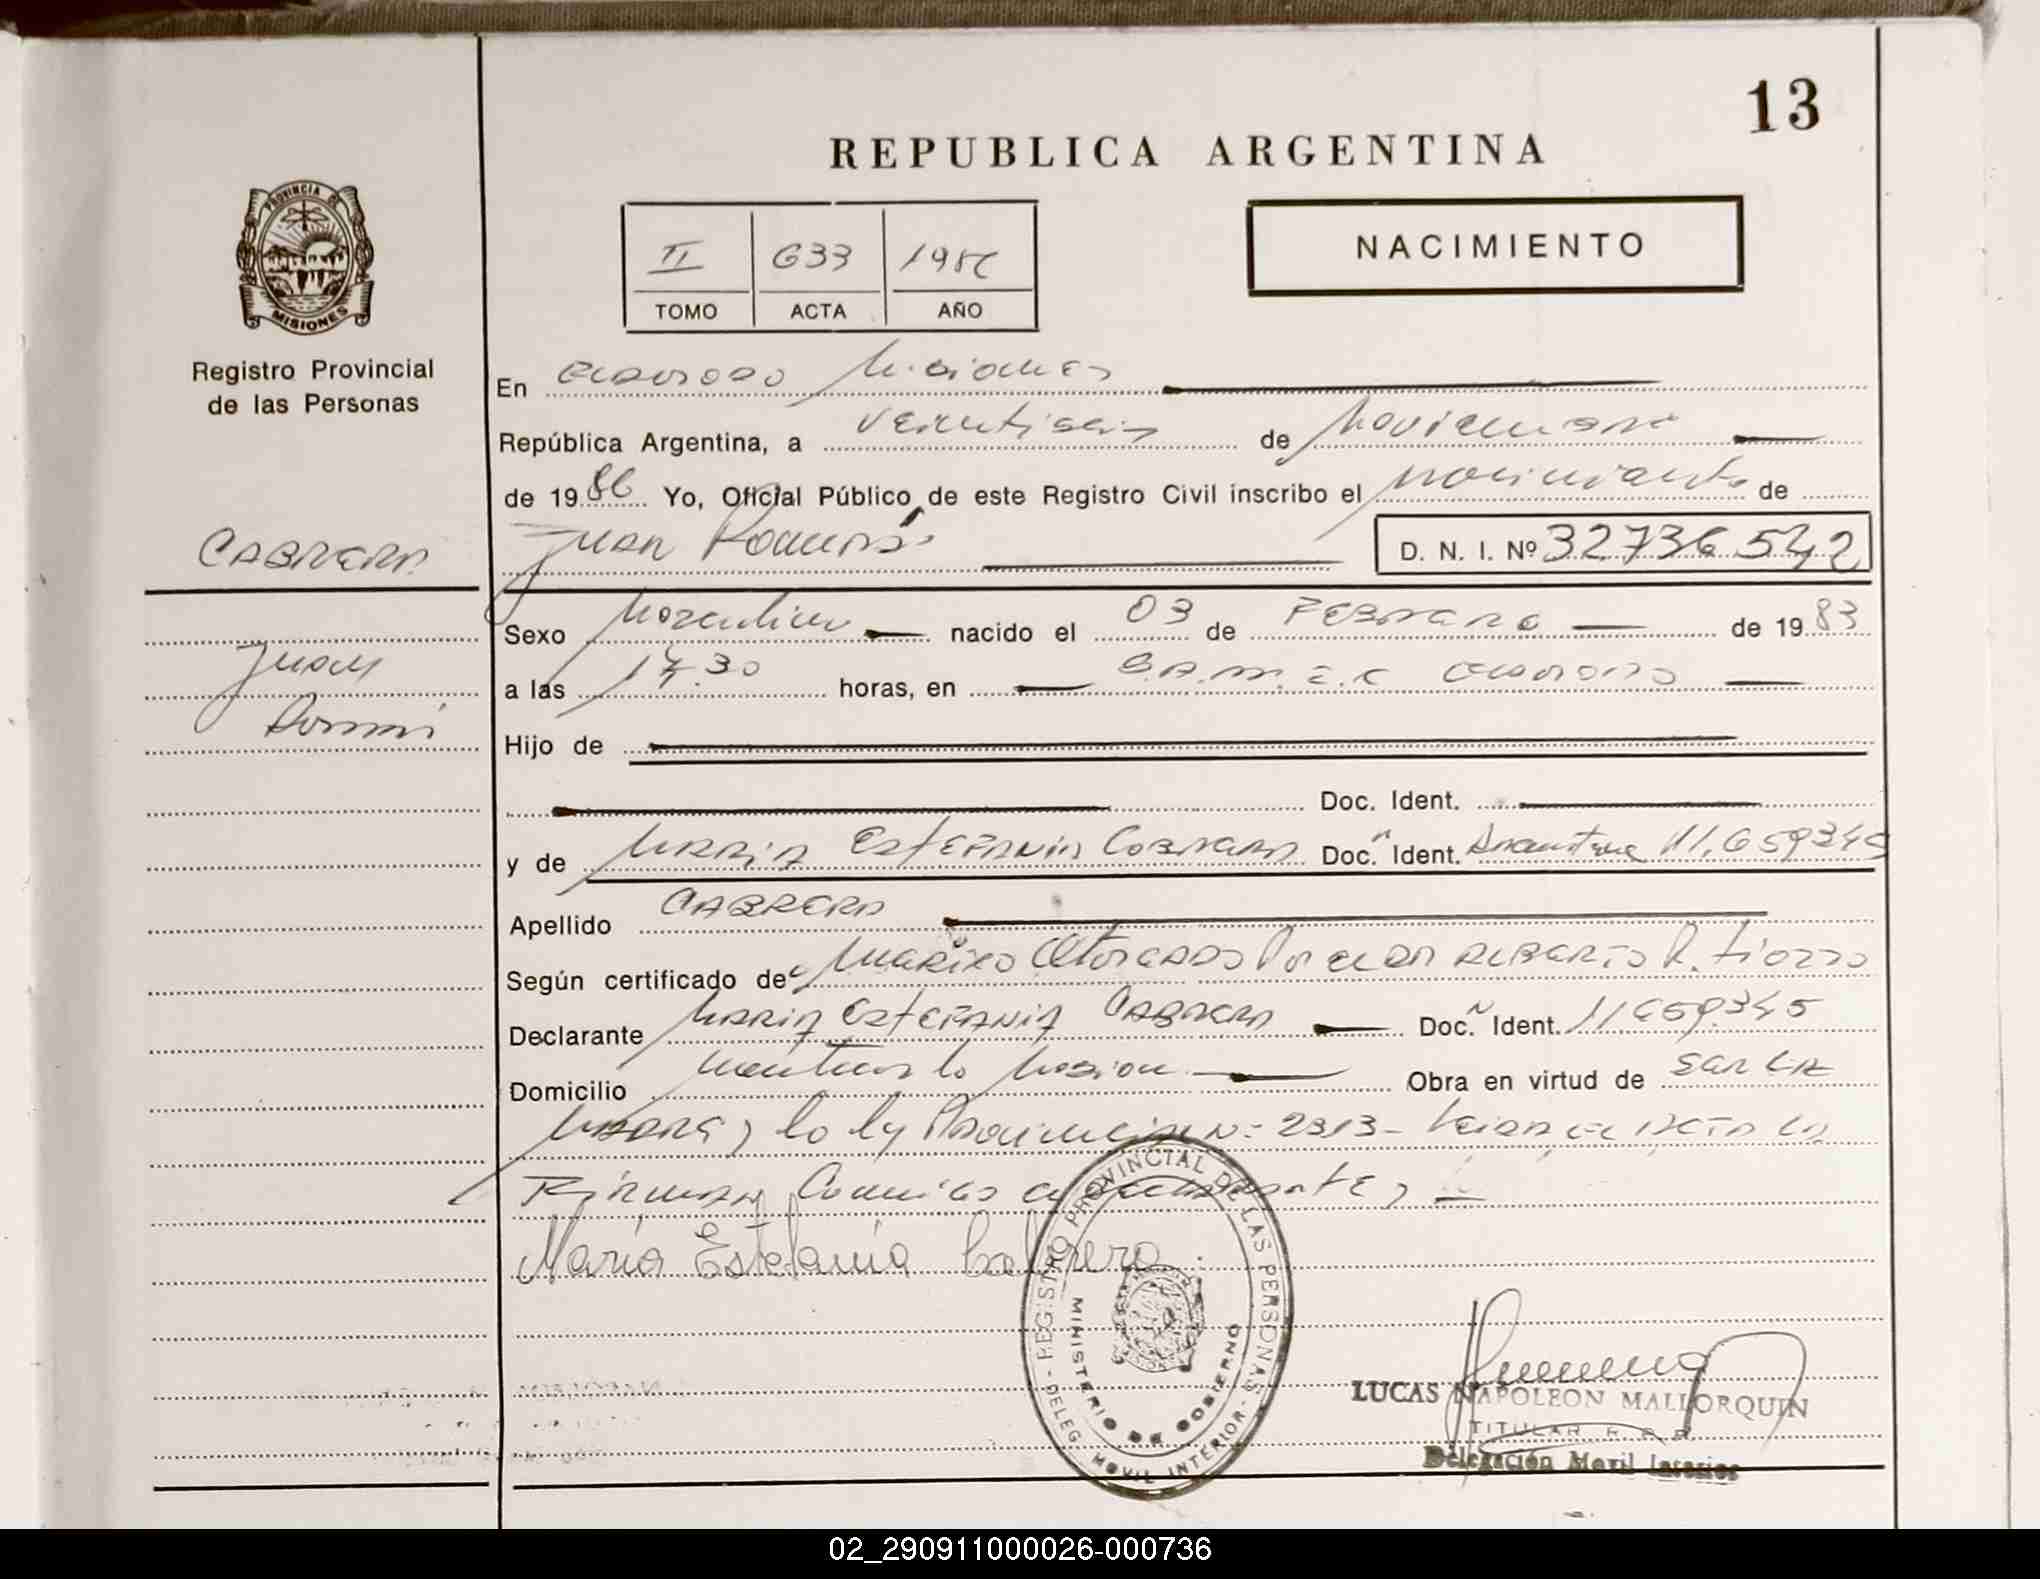 13
REPUBLICA ARGENTINA
PROVINCIA DE
MISIONES
Registro Provincial
de las Personas
II 633 1986
TOMO ACTA AÑO
NACIMIENTO
En Eldorado Misiones
República Argentina, a veintiseis de Noviembre
de 1986 Yo, Oficial Público de este Registro Civil inscribo el nacimiento de
CABRERA
Juan Román
D. N. I. Nº 32736542
Sexo Masculino nacido el 03 de FEBRERO de 1983
Juan
a las 17.30 horas, en S.A.M.I.C Eldorado
Román
Hijo de
Doc. Ident.
y de MARIA EstEFANIA CABRERA Doc.ⁿ Ident. Argentina 11.659345
Apellido CABRERA
Según certificado de Medico Otorgado Por el DR ALBERTO R.
Declarante MARIA EstEFANIA CABRERA Doc.ⁿ Ident. 11659.345
Domicilio Obra en virtud de SER LA
MADRE y la Ley Provincial Nº 2313- Leida el ACTA LA
Firman Conmigo el
María Estefania Cabrera
REGISTRO PROVINCIAL DE LAS PERSONAS
MINISTERIO DE GOBIERNO
DELEG. MOVIL INTERIOR
LUCAS NAPOLEON MALLORQUIN
TITULAR R. P. P.
Delegación Movil Interior
02_290911000026-000736